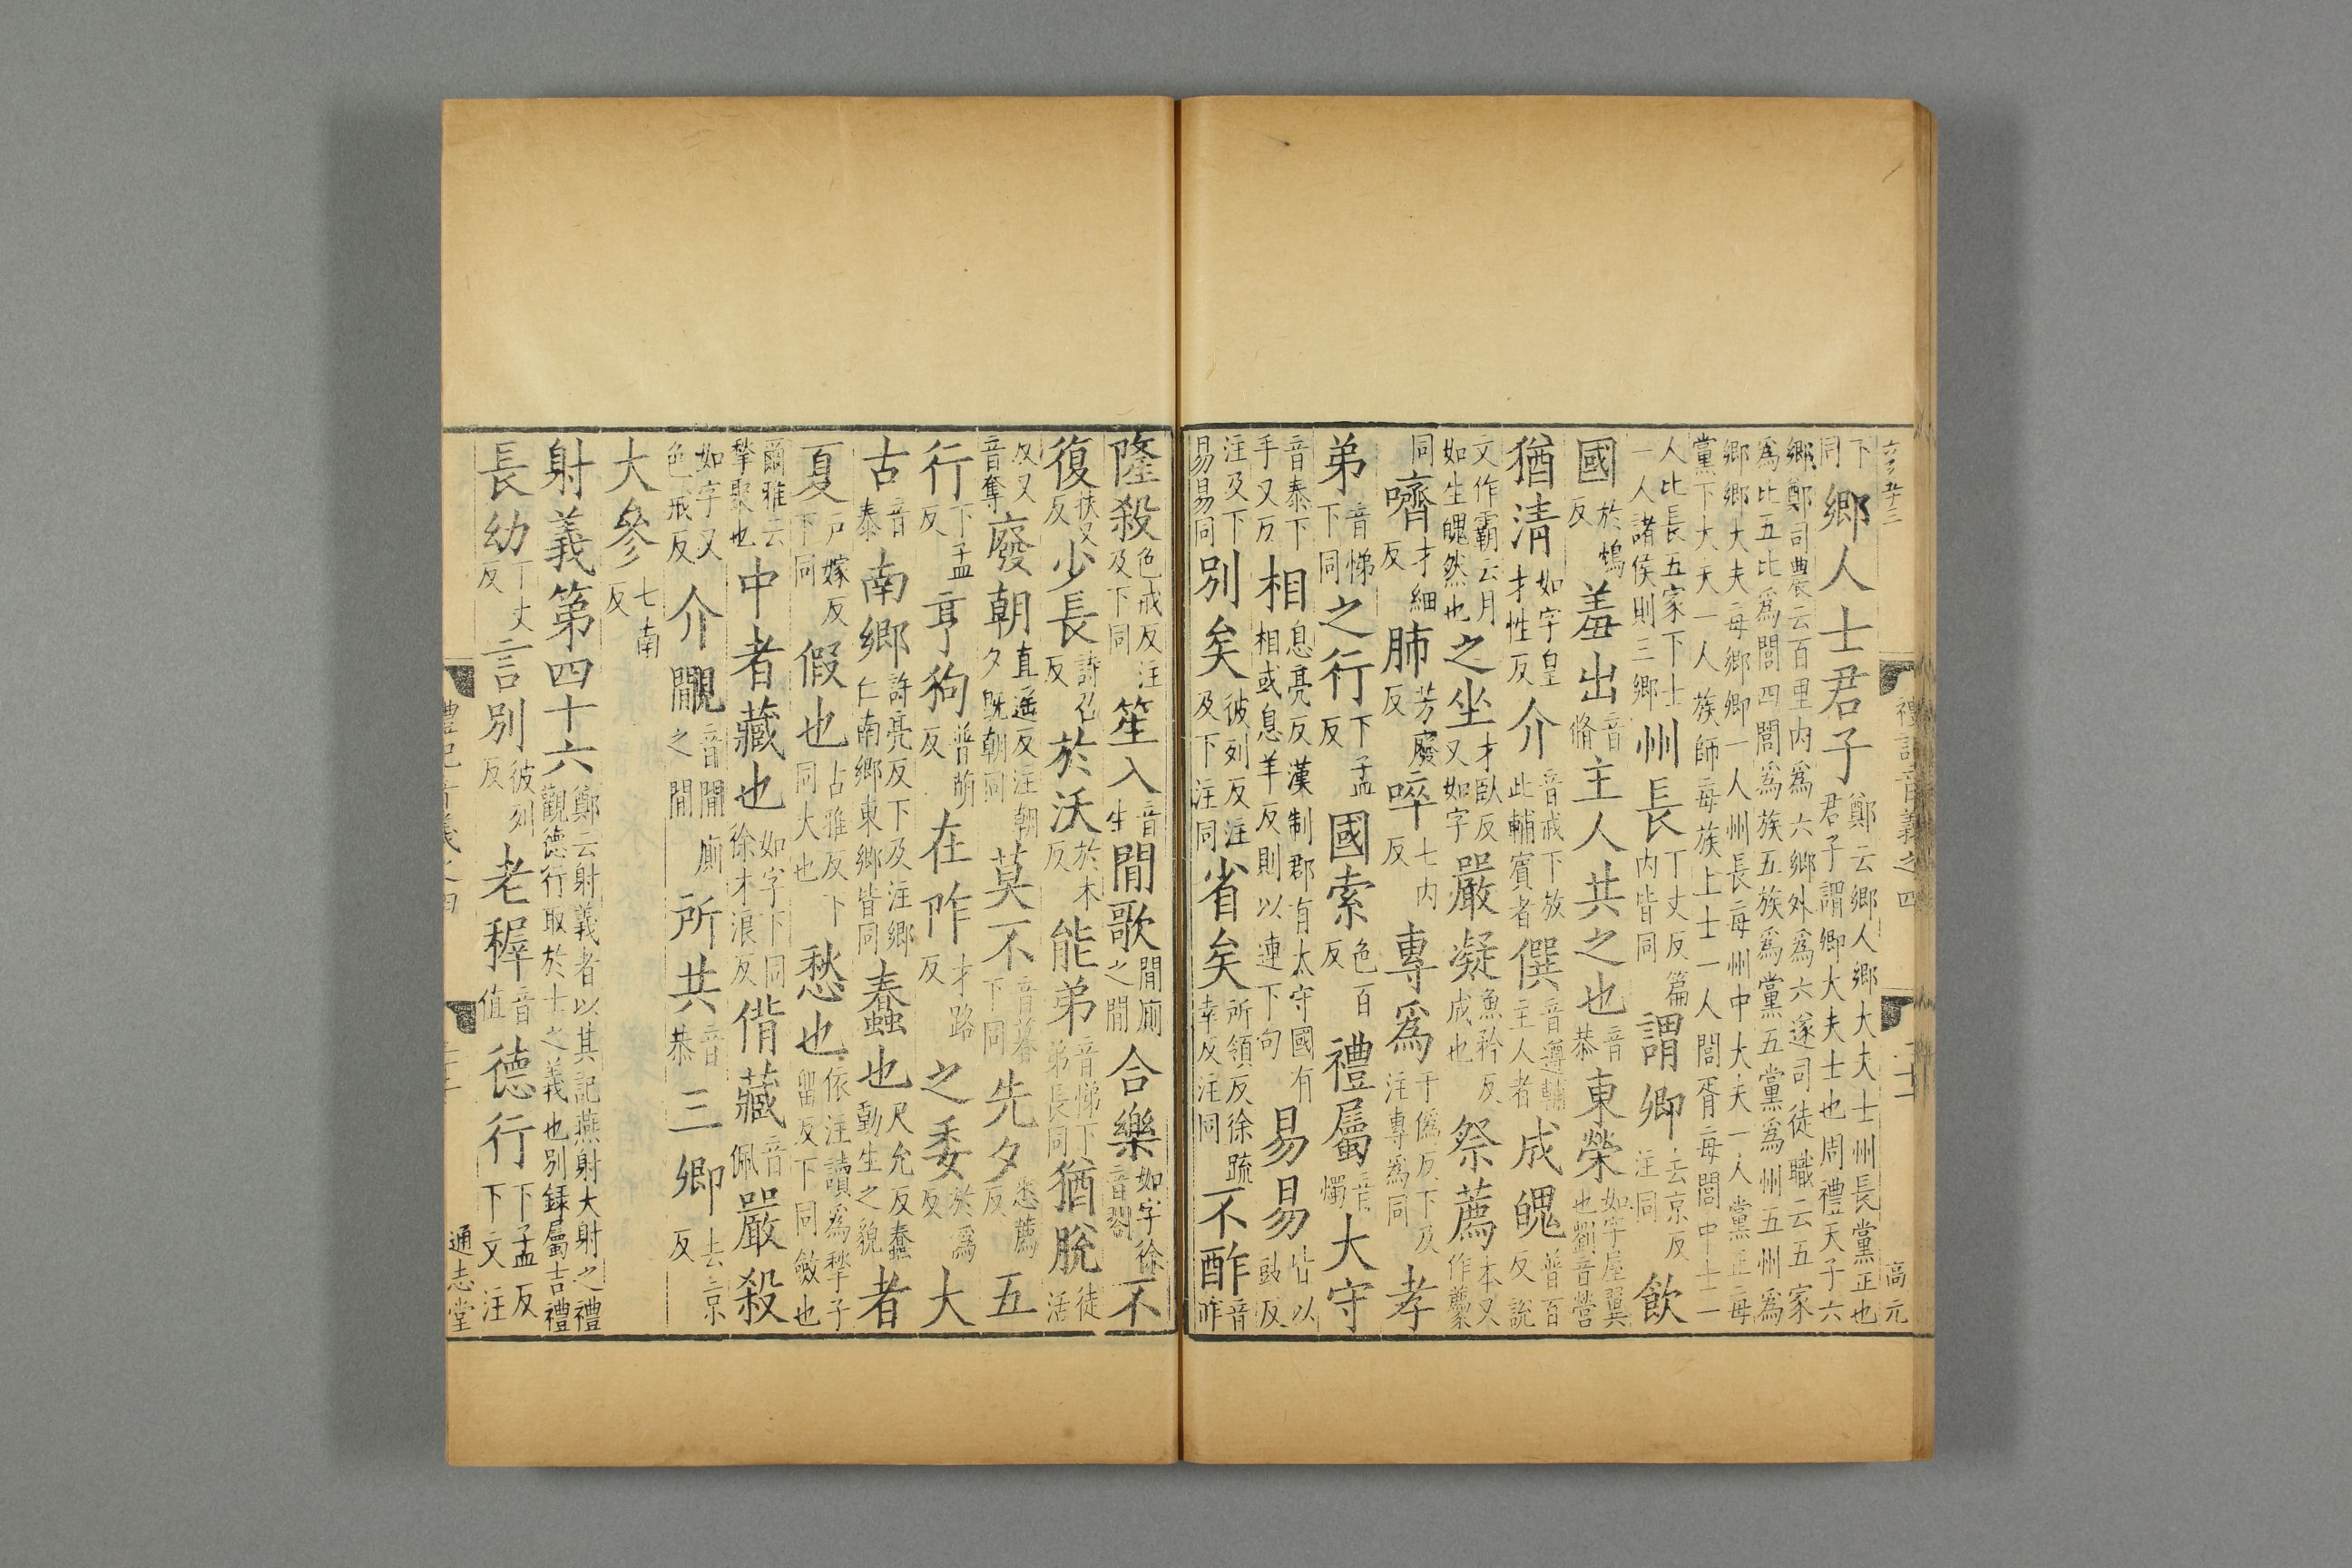 禮記音義之四
高元
下同鄉人士君子鄭云鄉人鄉大夫士州長黨正也君子謂卿大夫士也周禮天子六
鄉鄭司農云百里内爲六鄉外爲六遂司徒職云五家爲比五比爲閭四閭爲族五族爲黨五黨爲州五州爲
鄉鄉大夫每鄉卿一人州長每州中大夫一人黨正每黨下大夫一人族師每族上士一人閭胥每閭中士一
人比長五家下士一人諸侯則三鄉州長丁丈反篇内皆同謂卿去京反注同飲
國於鴆反羞出音脩主人共之也音恭東榮如字屋翼也劉音營
猶清如字皇才性反介音戒下放此輔賓者僎音遵輔主人者成魄普百反說
文作霸云月如生魄然也之坐才臥反又如字嚴凝魚矜反成也祭薦本又作薦
同嚌才細反肺芳廢反啐七内反專爲于僞反下及注專爲同孝
弟音悌下同之行下孟反國索色百反禮屬音燭大守
音泰下手又反相息亮反漢制郡有太守國有相或息羊反則以連下句易易皆以豉反
注及下易易同別矣彼列反注及下注同省矣所領反徐疏幸反注同不酢音昨
隆殺色戒反注及下同笙入音生閒歌閒廁之閒合樂如字徐音閣不
復扶又反少長詩召反於沃於木反能弟音悌下弟長同猶脫徒活
反又音奪廢朝直遥反注朝夕旣朝同莫不音暮下同先夕悉薦反五
行下孟反亨狗普萌反在阼才路反之委於爲反大
古音泰南鄉許亮反下及注鄉仁南鄉東鄉皆同蠢也尺允反蠢動生之貌者
夏戸嫁反下同假也古雅反下同大也愁也依注讀爲揫子留反下同斂也
爾雅云揫聚也中者藏也如字下同徐才浪反偝藏音佩嚴殺
如字又色戒反介覸音閒廁之閒所共音恭三卿去京反
大參七南反
射義第四十六鄭云射義者以其記燕射大射之禮觀德行取於士之義也別録屬吉禮
長幼丁丈反言別彼列反老稺音值德行下孟反下文注
禮記音義之四
通志堂